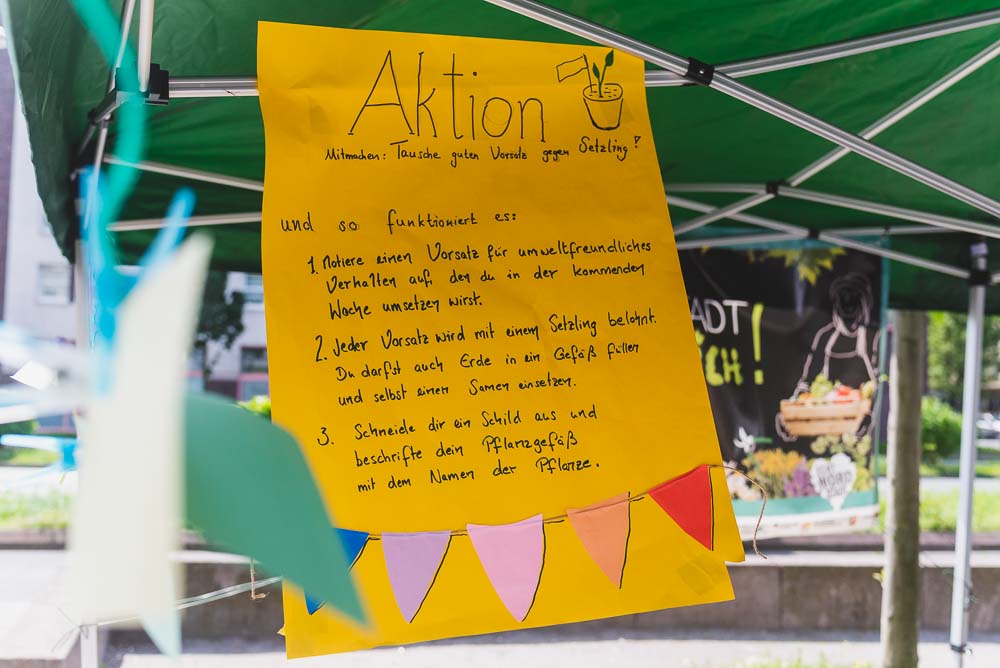 Aktion
Mitmachen: Tausche guten Vorsatz gegen Setzling!
und so funktioniert es:
1. Notiere einen Vorsatz für umweltfreundliches
Verhalten auf, den du in der kommenden
Woche umsetzen wirst.
2. Jeder Vorsatz wird mit einem Setzling belohnt.
Du darfst auch Erde in ein Gefäß füllen
und selbst einen Samen einsetzen.
3. Schneide dir ein Schild aus und
beschrifte dein Pflanzgefäß
mit dem Namen der Pflanze.
ADT
CH!
NORD